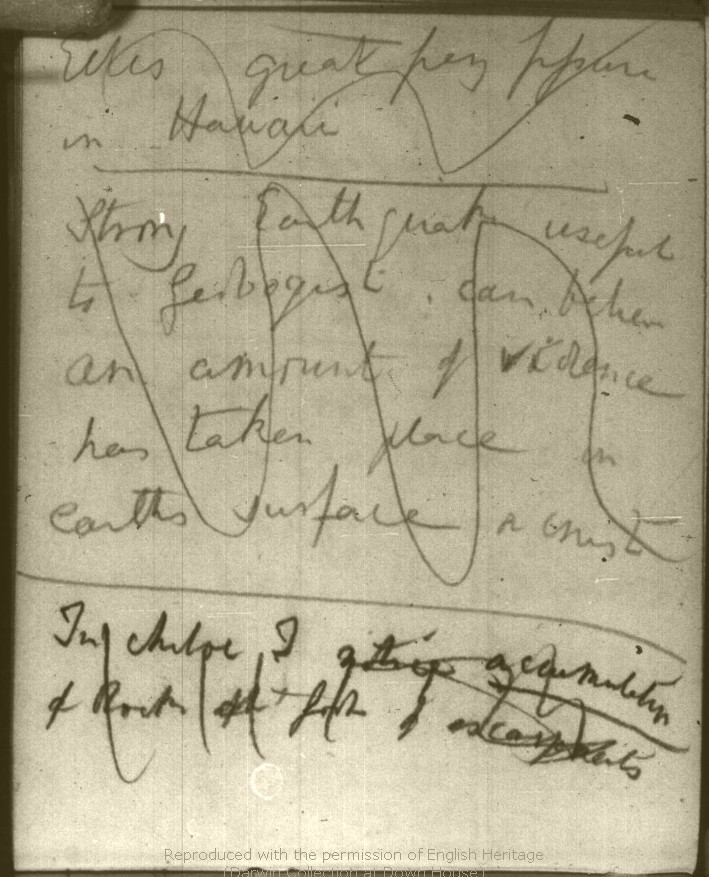 great
in Hawaii
Strong Earthquake useful
to Geologist. can believe
an amount of violence
has taken place in
earths surface & crust
In chiloe I accumulation
of Rocks at foot of escarpments
Reproduced with the permission of English Heritage
(Darwin Collection at Down House)